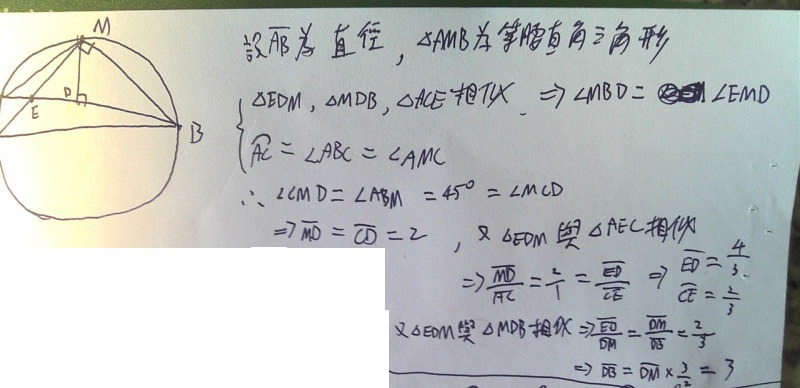 M
D
E
B
設AB̅為直徑, △AMB為等腰直角三角形
△EDM, △MDB, △ACE相似. ⇒ ∠MBD = ∠EMD
A͡C = ∠ABC = ∠AMC
∴ ∠CMD = ∠ABM = 45° = ∠MCD
⇒ M̅D̅ = C̅D̅ = 2 , 又△EDM與△AEC相似
⇒ M̅D̅/A̅C̅ = 2/1 = E̅D̅/C̅E̅ ⇒ E̅D̅ = 4/3
C̅E̅ = 2/3
又△EDM與△MDB相似 ⇒ E̅D̅/D̅M̅ = D̅M̅/D̅B̅ = 2/3
⇒ D̅B̅ = D̅M̅ × 3/2 = 3